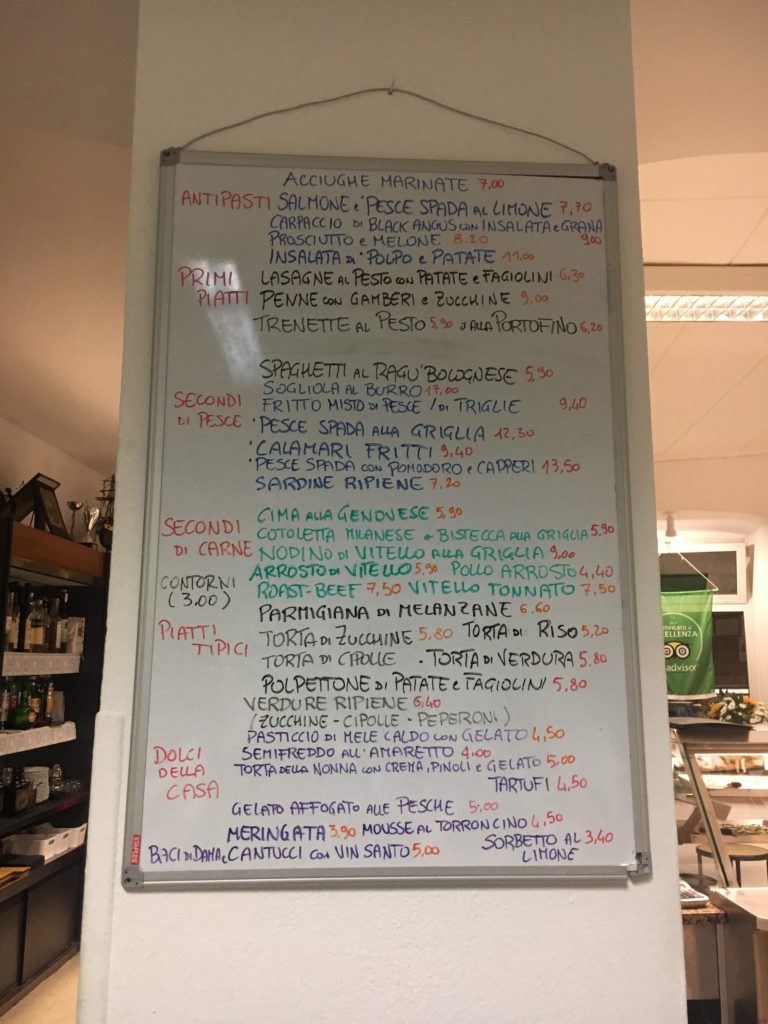 ACCIUGHE MARINATE 7,00
ANTIPASTI SALMONE e PESCE SPADA al LIMONE 7,70
CARPACCIO DI BLACK ANGUS con INSALATA e GRANA
PROSCIUTTO e MELONE 8.20 9,00
INSALATA di POLPO e PATATE 11,00
PRIMI LASAGNE al PESTO con PATATE e FAGIOLINI 6,30
PIATTI PENNE con GAMBERI e ZUCCHINE 9,00
TRENETTE al PESTO 5,90 o alla PORTOFINO 6,20
SPAGHETTI al RAGU' BOLOGNESE 5,90
SOGLIOLA al BURRO 17,00
SECONDI FRITTO MISTO di PESCE / di TRIGLIE 9,40
DI PESCE PESCE SPADA alla GRIGLIA 12,30
CALAMARI FRITTI 9,40
PESCE SPADA con POMODORO e CAPPERI 13,50
SARDINE RIPIENE 7,20
SECONDI CIMA alla GENOVESE 5,90
DI CARNE COTOLETTA MILANESE o BISTECCA alla GRIGLIA 5,90
NODINO di VITELLO alla GRIGLIA 9,00
CONTORNI ARROSTO di VITELLO 5,90 POLLO ARROSTO 4,40
(3.00) ROAST-BEEF 7,50 VITELLO TONNATO 7,50
PARMIGIANA di MELANZANE 6,60
PIATTI TORTA di ZUCCHINE 5,80 TORTA di RISO 5,20
TIPICI TORTA di CIPOLLE . TORTA di VERDURA 5,80
POLPETTONE di PATATE e FAGIOLINI 5,80
VERDURE RIPIENE 6,40
(ZUCCHINE - CIPOLLE - PEPERONI)
PASTICCIO di MELE CALDO con GELATO 4,50
DOLCI SEMIFREDDO all'AMARETTO 4.00
DELLA TORTA della NONNA con CREMA, PINOLI e GELATO 5,00
CASA TARTUFI 4,50
GELATO AFFOGATO alle PESCHE 5,00
MERINGATA 3,90 MOUSSE al TORRONCINO 4,50
BACI di DAMA e CANTUCCI con VIN SANTO 5,00 SORBETTO AL 3,40
LIMONE
STAPLES